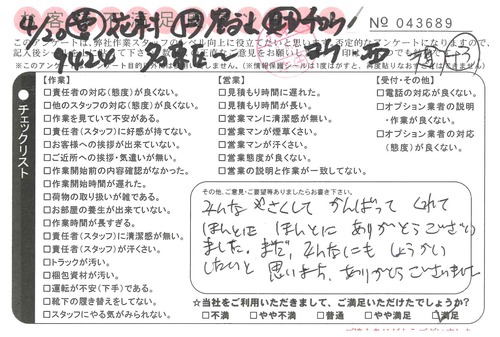 4/20
№ 043689
9424
このアンケートは、弊社作業スタッフのレベル向上に役立てたいと思います。否定的なアンケートになりますので、
※このアンケート
(※情報保護シールは1度はがすと、再度貼りなおすことはできません)
チェックリスト
【作業】
□責任者の対応(態度)が良くない。
□他のスタッフの対応(態度)が良くない。
□作業を見ていて不安がある。
□責任者(スタッフ)に好感が持てない。
□お客様への挨拶が出来ていない。
□ご近所への挨拶・気遣いが無い。
□作業開始前の内容確認がなかった。
□作業開始時間が遅れた。
□荷物の取り扱いが雑である。
□お部屋の養生が出来ていない。
□作業時間が長すぎる。
□責任者(スタッフ)に清潔感が無い。
□責任者(スタッフ)が汗くさい。
□トラックが汚い。
□梱包資材が汚い。
□運転が不安(下手)である。
□靴下の履き替えをしてない。
□スタッフにやる気がみられない。
【営業】
□見積もり時間に遅れた。
□見積もり時間が長い。
□営業マンに清潔感が無い。
□営業マンが煙草くさい。
□営業マンが汗くさい。
□営業態度が良くない。
□営業の説明と作業が一致してない。
【受付・その他】
□電話の対応が良くない。
□オプション業者の説明
・作業が良くない。
□オプション業者の対応
(態度)が良くない。
その他、ご意見・ご要望等ありましたらお書き下さい。
みんな やさしくて がんばって くれて
ほんとに ほんとに ありがとうござい
ました。また、みんなにも しょうかい
したいと 思います。ありがとうございました
☆当社をご利用いただきまして、ご満足いただけたでしょうか?
□不満 □やや不満 □普通 □やや満足 ☑満足